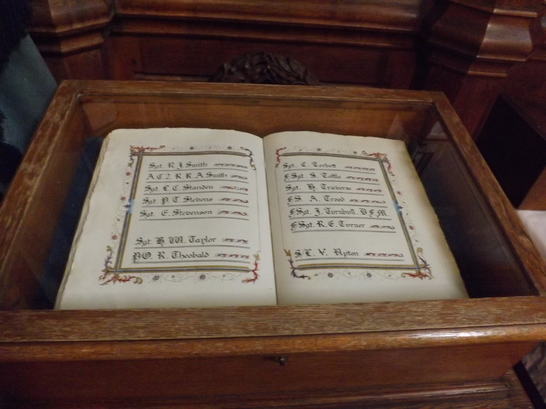 Sgt. R. J. Smith
A.C.2. R. R. A. Smith
Sgt. L. C. Standen
Sgt. P. T. Stevens
Sgt. E. Stevenson
Sgt. H. W. Taylor
P.O. R. Theobald
Sgt. C.
F. Sgt. S.
Sgt. H. Travers
F.S. A. Trood
F. Sgt. J. Turnbull. D.F.M.
F. Sgt. R. E. Turner
S.L. V. Upton